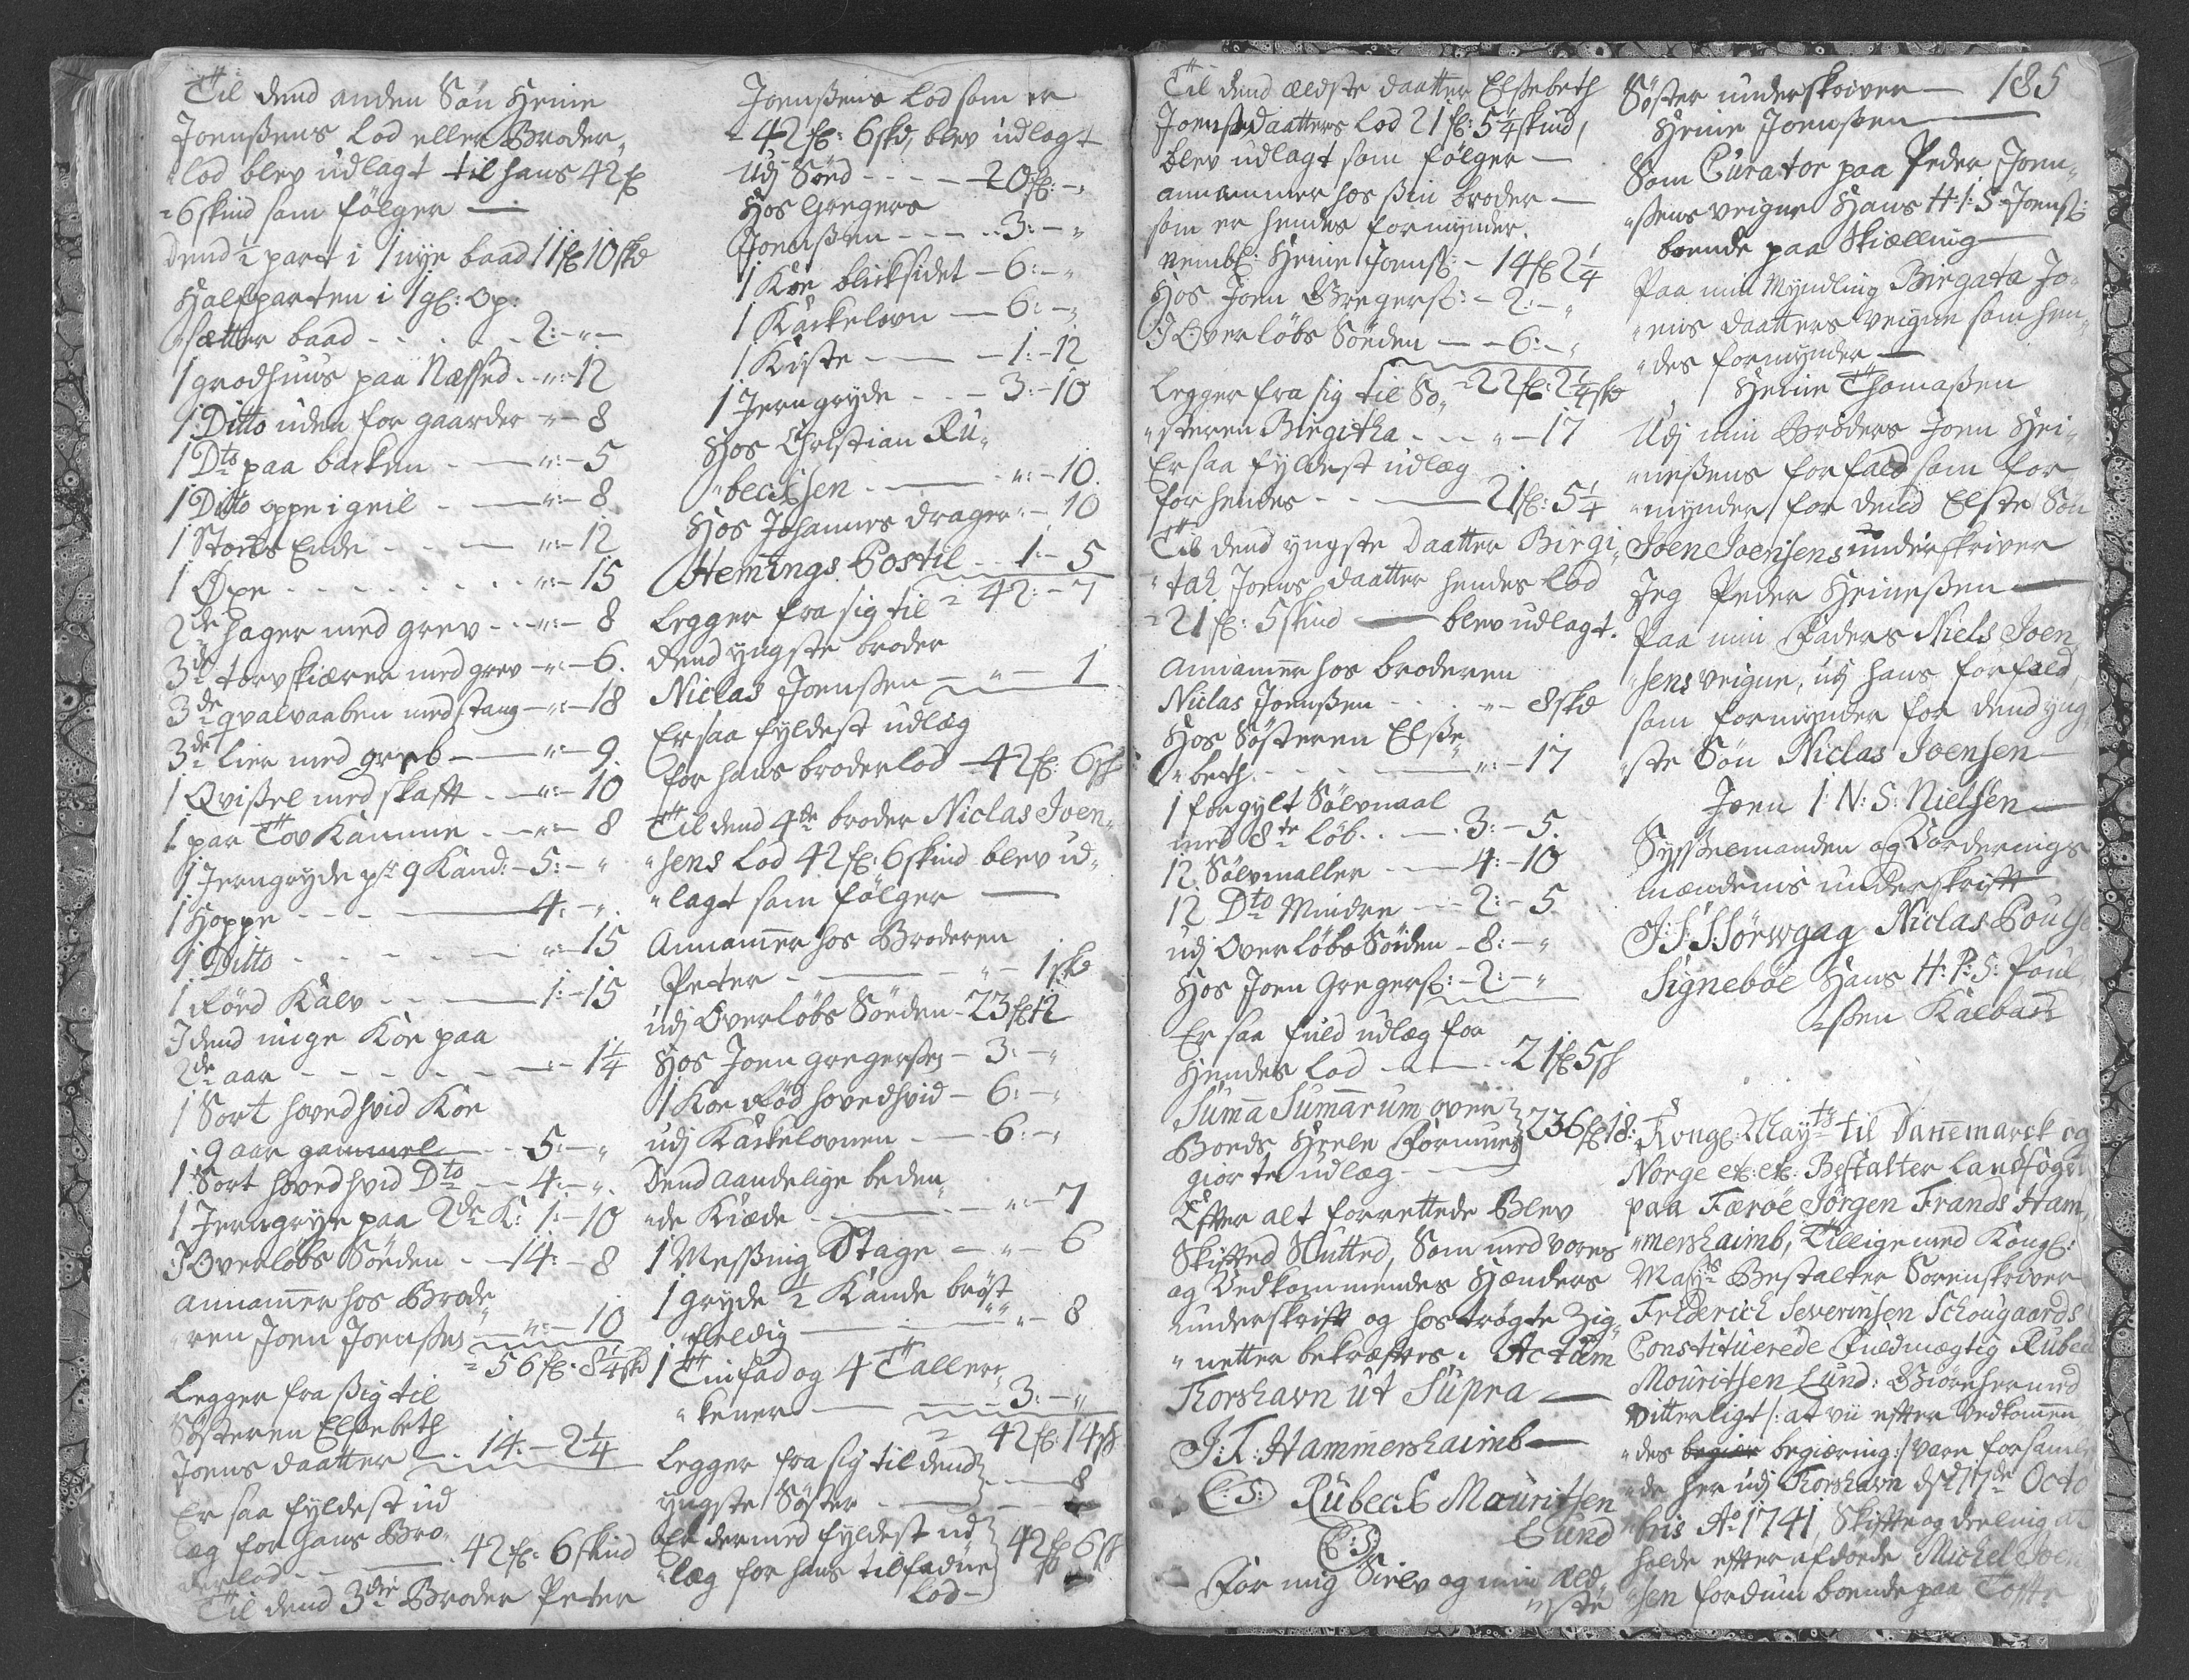 Til dend anden Søn Heine
Joenßens lod eller Broder„
„lod blev udlagt til hans 42 f
„6 skind som følger —
dend ½ part i 1 nye baad 11 f 10 skd
Halfparten i 1 gl: Op:
„sætter baad - - - - - 2:-„-
1 grodhuus paa Næssed - „:-12
1 Ditto uden for gaarder „- 8
1 Dto paa barken - — „:- 5
1 Ditto oppe i geil - — „:- 8
1 Stocks Ende - - - — „:-12
1 Øxe - - - - - - „:- 15
2de hager med grev - - „:- 8
3de torvskiærer med grev -„:-6.
3de qvalvaaben med stang -„:-18
3de lier med greb — „:- 9.
1 Qvißel med skafft - „:- 10
1 par Tov Kamme - - „- 8
1 Jerngryde paa 9 Kand: -5:-„
1 Hoppe - - - — 4:-„.
1 Ditto - - - - - „:-15
1 Rød Kalv - - — 1:-15
I dend unge Koe paa
2de aar - - - - - — -:- 1¼
1 Sort hovedhvid Koe
9 aar gammel - - 5:-„
1 Sort hovedhvid Dto - - 4:-„.
1 Jerngrye paa 2de K: 1:-10
I Overløbs Søeden - - 14:- 8
Annammer hos Brode„
„ren Joen Joenßen — „:-10
„56 f: 8¼ skd
Legger fra ßig til
Søsteren Elsebeth
Joens daatter - - 14:- 2¼
Er saa fyldest ud
læg for hans Bro„
derlod - - — 42 f: 6 skind
Til dend 3die Broder Peter
Joenßens lod som er
-42 f: 6 skd, blev udlagt
Udj Søed - - - - 20 f: -„
Hos Gregers
Joenßen - - - - 3:-„
1 Koe blicksidet - 6:-„
1 Kackelovn — 6:-„
1 Kiste - — - 1:-12
1 Jerngryde - - - 3:-10
Hos Christian Ru„
„becksen - — - „:-10.
Hos Johannes drager „- 10
Hemings Postil - - 1:- 5
Legger fra sig til „ 42:- 7
dend yngste broder
Niclas Joenßen - — „- 1
Er saa fyldest udlæg
for hans broderlod -42 f: 6 sk
Til dend 4de broder Niclas Joen„
„sens lod 42 f: 6 skind blev ud„
„lagt som følger —
Annammer hos Broderen
Peter - — - „- 1 skd
udj Overløbs Søeden - 23 f 12
Hos Joen Gregersen - 3:-„
1 Koe Rød hovedhvid - 6:-„
udj Kackelovnen - — 6:-„
Dend aandelige beden„
„de Kiæde - — - „:-7
1 Messing Stage - - „- 6
1 Gryde ½ Kande brøst„
„feldig — - — „- 8
1 Tinfad og 4 Taller„
„kener — - — 3:-„
„ 42 f: 14 sk
Legger fra sig til dend
yngste Søster - — - 8
Er dermed fyldest ud
„læg for hans tilfaldne 42 f 6 sk
lod -
185
Til dend ældste daatter Elsebeth
Joensdaatters lod 21 f: 5¼ skind,
blev udlagt som følger —
annammer hos ßin broder —
som er hendes formynder.
nembl: Heine Joenß: - 14 f 2¼
Hos Joen Gregerß: - 2:-„
I Overløbs Søeden — 6:-„
„22 f: 2¼ sk
Legger fra sig til Sø„
„steren Birgitha - - - „- 17
Er saa fyldest udlæg
for hendes - - — 21 f: 5¼
Til dend yngste Daatter Birgi„
„tak Joens daatter hendes Lod
„21 f: 5 skind — blev udlagt.
Annammer hos broderen
Niclas Joenßen - - - „- 8 skd
Hos Søsteren Elße„
„beth - - - — „:-17
1 forgylt Sølvnaal
med 8te løb - - — 3:- 5.
12 Sølvmaller - — 4:-10
12 Dto Mindre - - - 2:- 5
udj Overløbs Søeden - 8:-„
Hos Joen Gregerß: - 2:-„
Er saa fuld udlæg for
Hendes lod - — 21 f 5 sk
Summa Summarum over
Boeds Heele Formue 236 f 18:
giorte udlæg -
Efter alt forrettede Blev
Skifted Slutted, Som med vores
og Vedkommendes Hænders
underskrift og hostrøgte Zig„
„netter bekræftes. Actum
Thorshavn ut Supra —
J: F: Hammershaimb —
(L: S:) Rubeck Mouritsen
Lund
(L:S:)
For mig Sielv og min Æld„
„ste
Søster underskriver —
Heine Joenßen —
Som Curator paa Peder Joen„
„ßens veigne Hans H: I: S. Joenß:
boende paa Skiælling —
Paa min Myndling Birgata Jo„
„ens daatters veigne som hen„
„des formynder —
Heine Thomaßen
Udj min Broders Joen Hei„
„neßens forfald som for„
„mynder for dend Elste Søn
Joen Joensens underskriver
Jeg Peder Heineßen —
Paa min Faders Niels Joen„
„sens veigne, udj hans forfald
som formynder for dend yng„
„ste Søn Niclas Joensen —
Joen I: N: S: Nielsen —
Sysselmanden og Vorderings
mændenis underskrifft
J: J: S: Sørwgag Niclas Pouls:
Signebøe Hans H: P: S: Poul„
„ßen Kalbach
Kongl: Mayts til Dannemarck og
Norge etc: etc: Bestalter Landfoget
paa Færøe Jørgen Frands Ham„
„mershaimb, Tillige med Kongl:
Mayts Bestalter Sorenskriver
Friderich Severinsen Schougaards
Constituerede Fuldmægtig Rubeck
Mouritsen Lund: Giøre hermed
Vitterligt /: at vii efter Vedkommen„
„des begiær begiæring :/ vare forsaml„
„de her udj Thorshavn d: 17de Octo
bris Ao 1741, Skiffte og deeling at
holde effter afdøde Michel Joen„
„sen fordum boende paa Toffte